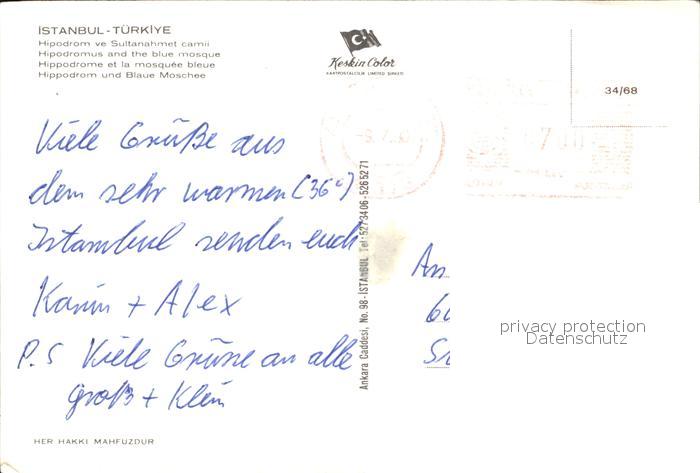 İSTANBUL - TÜRKİYE
Hipodrom ve Sultanahmet camii
Hipodromus and the blue mosque
Hippodrome et la mosquée bleue
Hippodrom und Blaue Moschee
Keskin Color
KARTPOSTALCILIK LIMITED ŞIRKETI
34/68
Viele Grüße aus
dem sehr warmen (36°)
Istambul senden euch
Karin + Alex
P.S Viele Grüße an alle
groß + Klein
HER HAKKI MAHFUZDUR
Ankara Caddesi, No. 98-İSTANBUL Tel: 5273406-5265271
An
privacy protection
Datenschutz